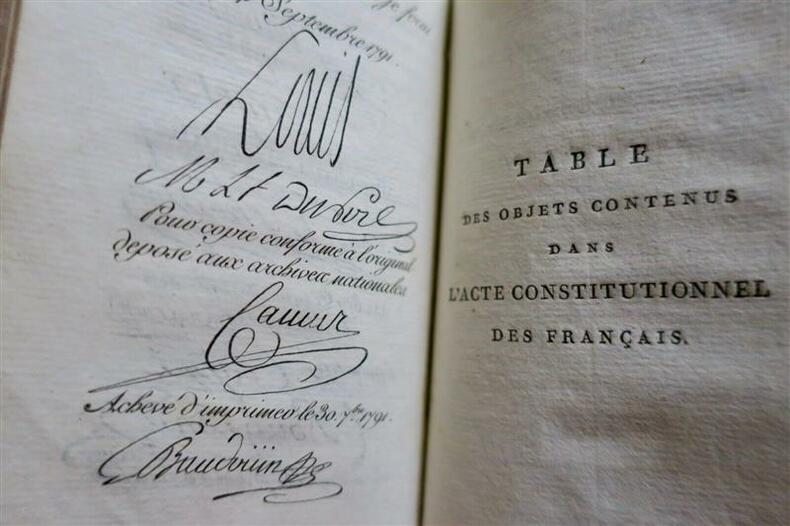 Septembre 1791.
Louis
M L F DuPort
Pour copie conforme à l'original
déposé aux archives nationales
Camus
Achevé d'imprimer le 30. 7.bre 1791.
Baudouin
TABLE
DES OBJETS CONTENUS
DANS
L'ACTE CONSTITUTIONNEL
DES FRANÇAIS.